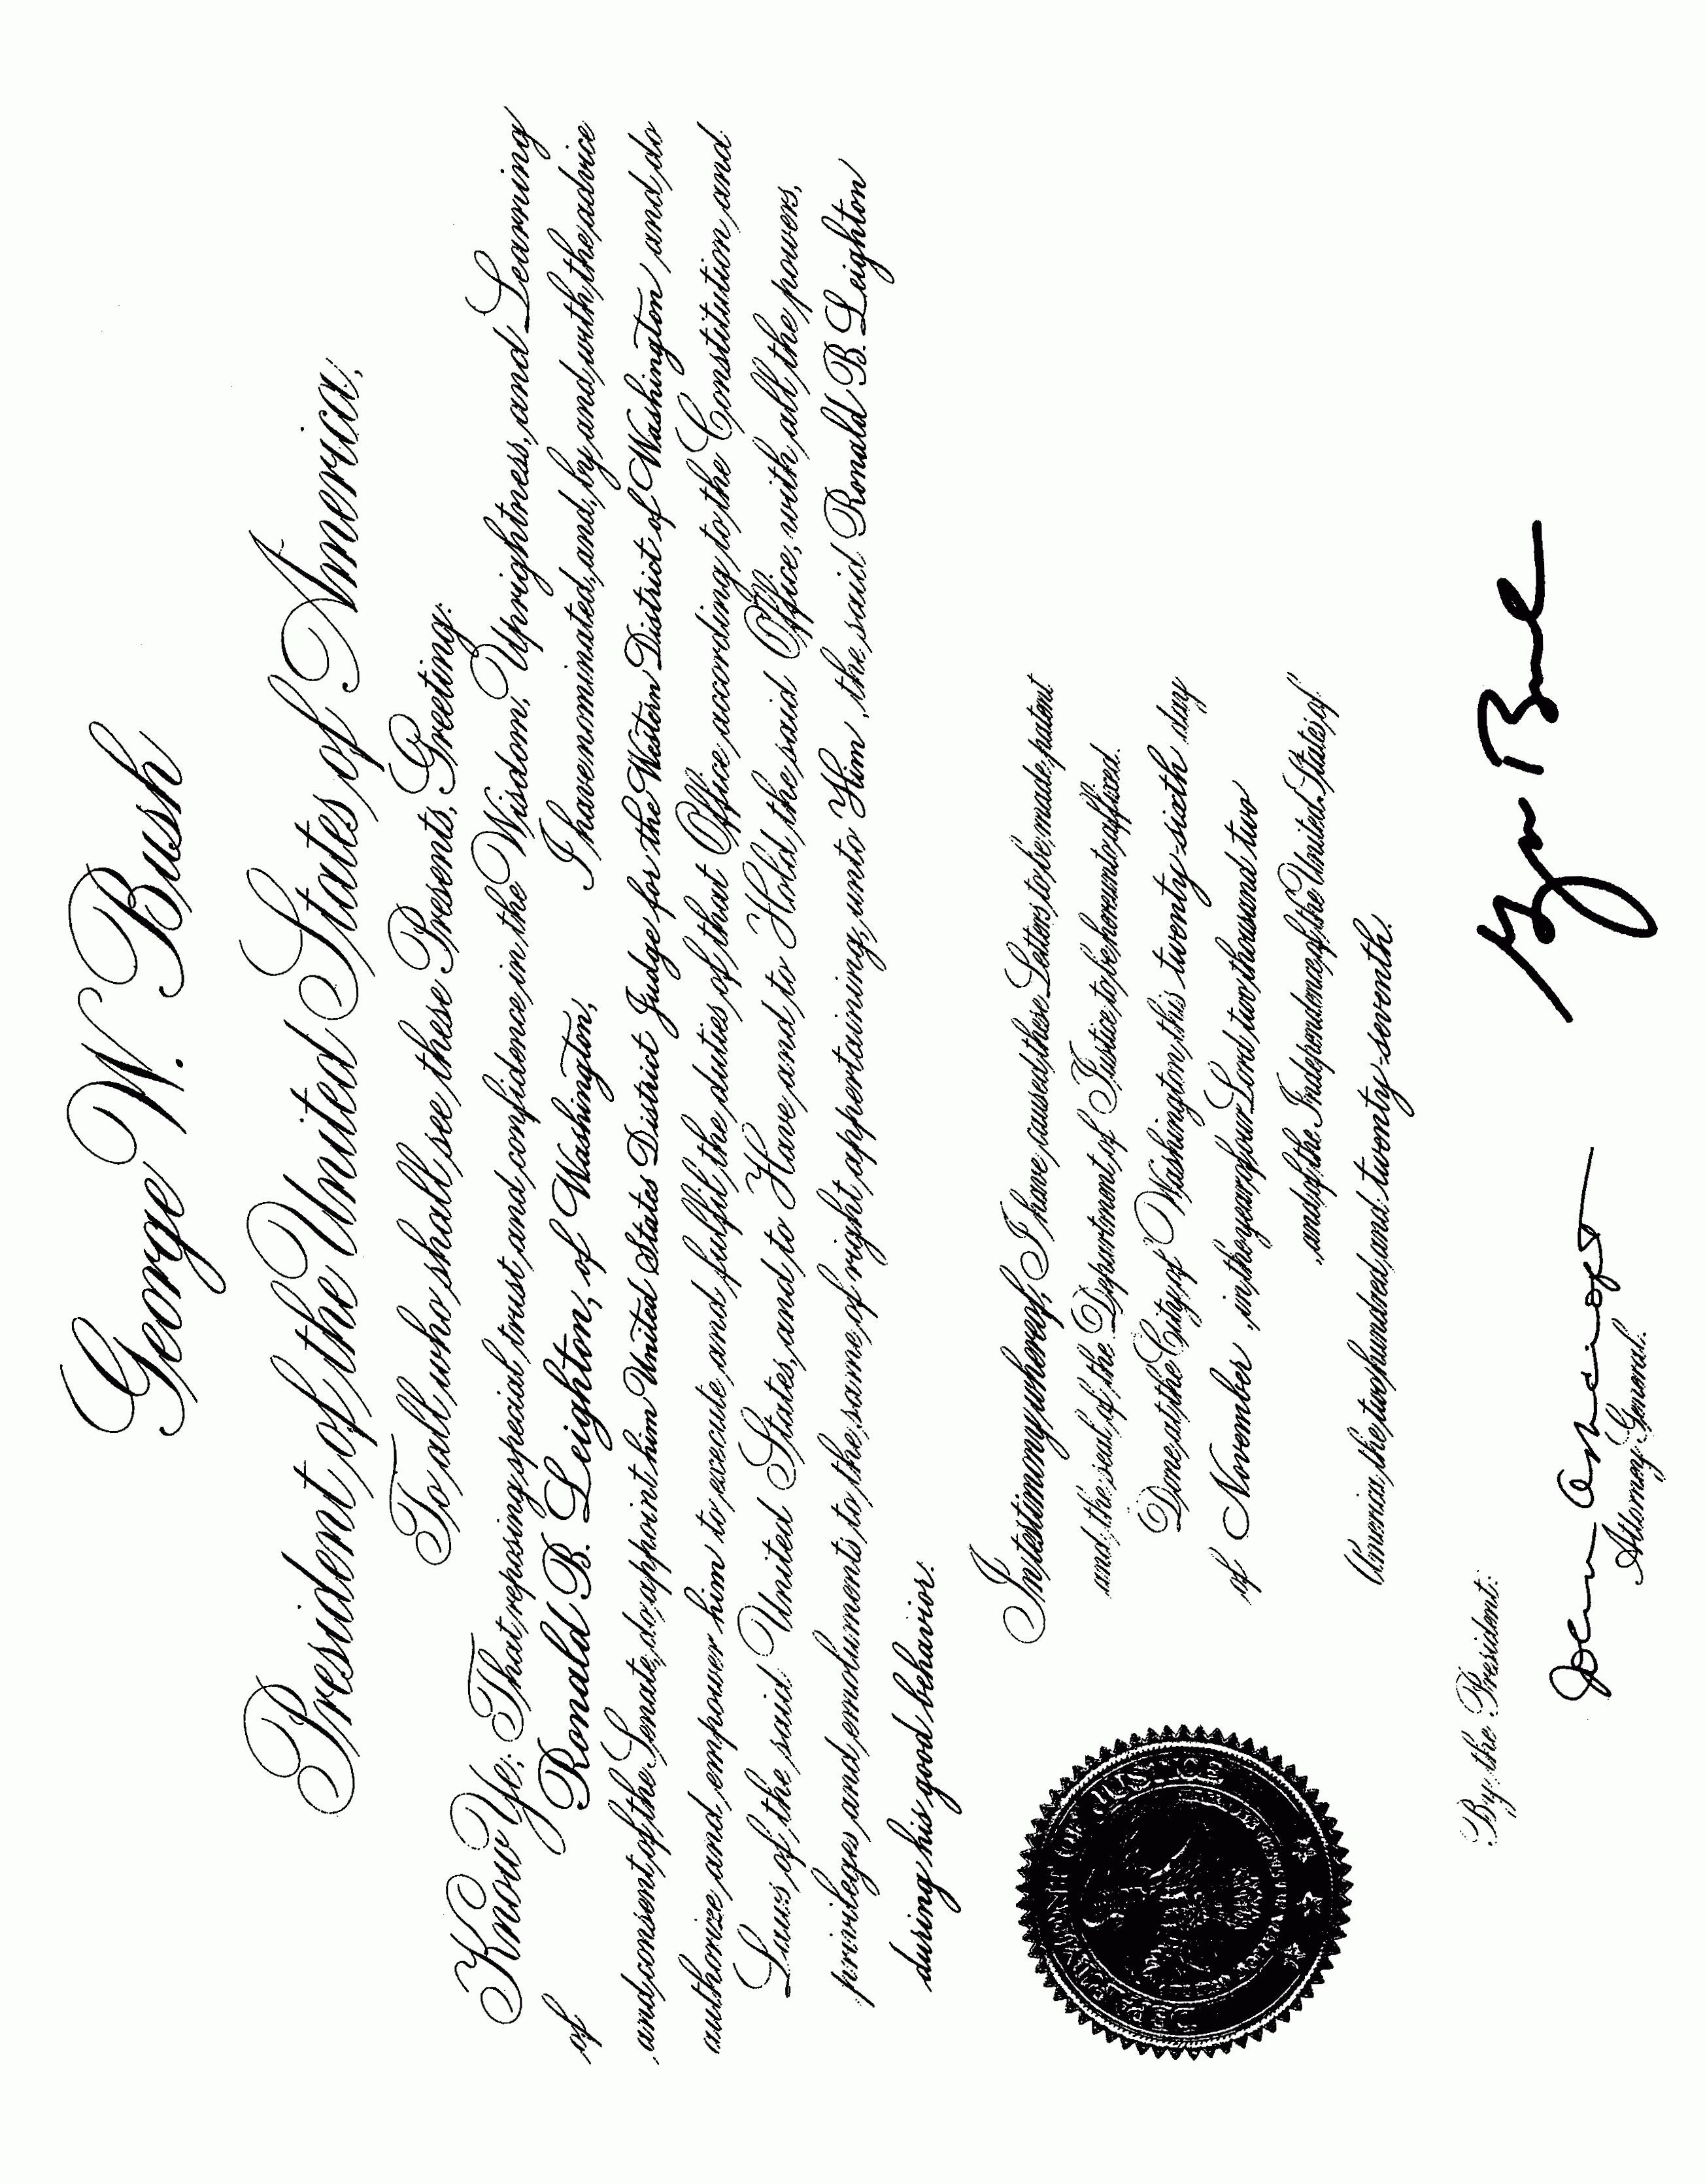 George W. Bush
President of the United States of America,
To all who shall see these Presents, Greeting:
Know Ye; That reposing special trust and confidence in the Wisdom, Uprightness, and Learning
of Ronald B. Leighton, of Washington, I have nominated, and, by and with the advice
and consent of the Senate, do appoint him United States District Judge for the Western District of Washington and do
authorize and empower him to execute and fulfil the duties of that Office according to the Constitution and
Laws of the said United States, and to Have and to Hold the said Office, with all the powers,
privileges and emoluments to the same of right appertaining, unto Him, the said Ronald B. Leighton
during his good behavior.
In testimony whereof, I have caused these Letters to be made patent
and the seal of the Department of Justice to be hereunto affixed.
Done at the City of Washington this twenty-sixth day
of November, in the year of our Lord two thousand two
, and of the Independence of the United States of
America the two hundred and twenty-seventh.
DEPARTMENT OF JUSTICE
By the President:
George Bush
John Ashcroft
Attorney General.